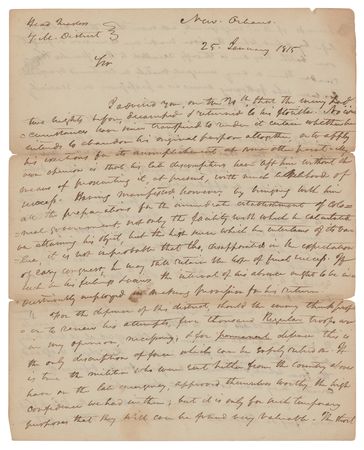 Head Quarters
7 M. District
New-Orleans.
25 January 1815
Sir
I advised you, on the that the enemy had
two nights before, decamped & returned to his No
circumstances have since transpired to render it certain whether he
intends to abandon his original purpose altogether, or to apply
his exertions for its accomplishment, at some other point. My
own opinion is that his late discomfiture has left him without the
means of prosecuting it, at present, with much likelihood of
success. Having manifested however, by bringing with him
all the preparations for the immediate establishment of Colo-
nial government, not only the facility with which he calculated
on attaining his object, but the high sense which he entertains of its va-
lue, it is not improbable that tho, disappointed in the expectation
of easy conquest, he may still retain the hope of final success. If
such be his feelings & views the interval of his absence ought to be in-
dustriously employed in making provision for his return
For the defence of this district, should the enemy think prop-
er to renew his attempts, five thousand Regular troops are
in my opinion, necessary; & for permanent defence this is
the only description of force which can be safely relied on. It
is true the militia who were sent hither from the country above
have on the late emergency, approved themselves worthy the high
confidence we had in them; but it is only for such temporary
purposes that they will can be found very valuable. The short